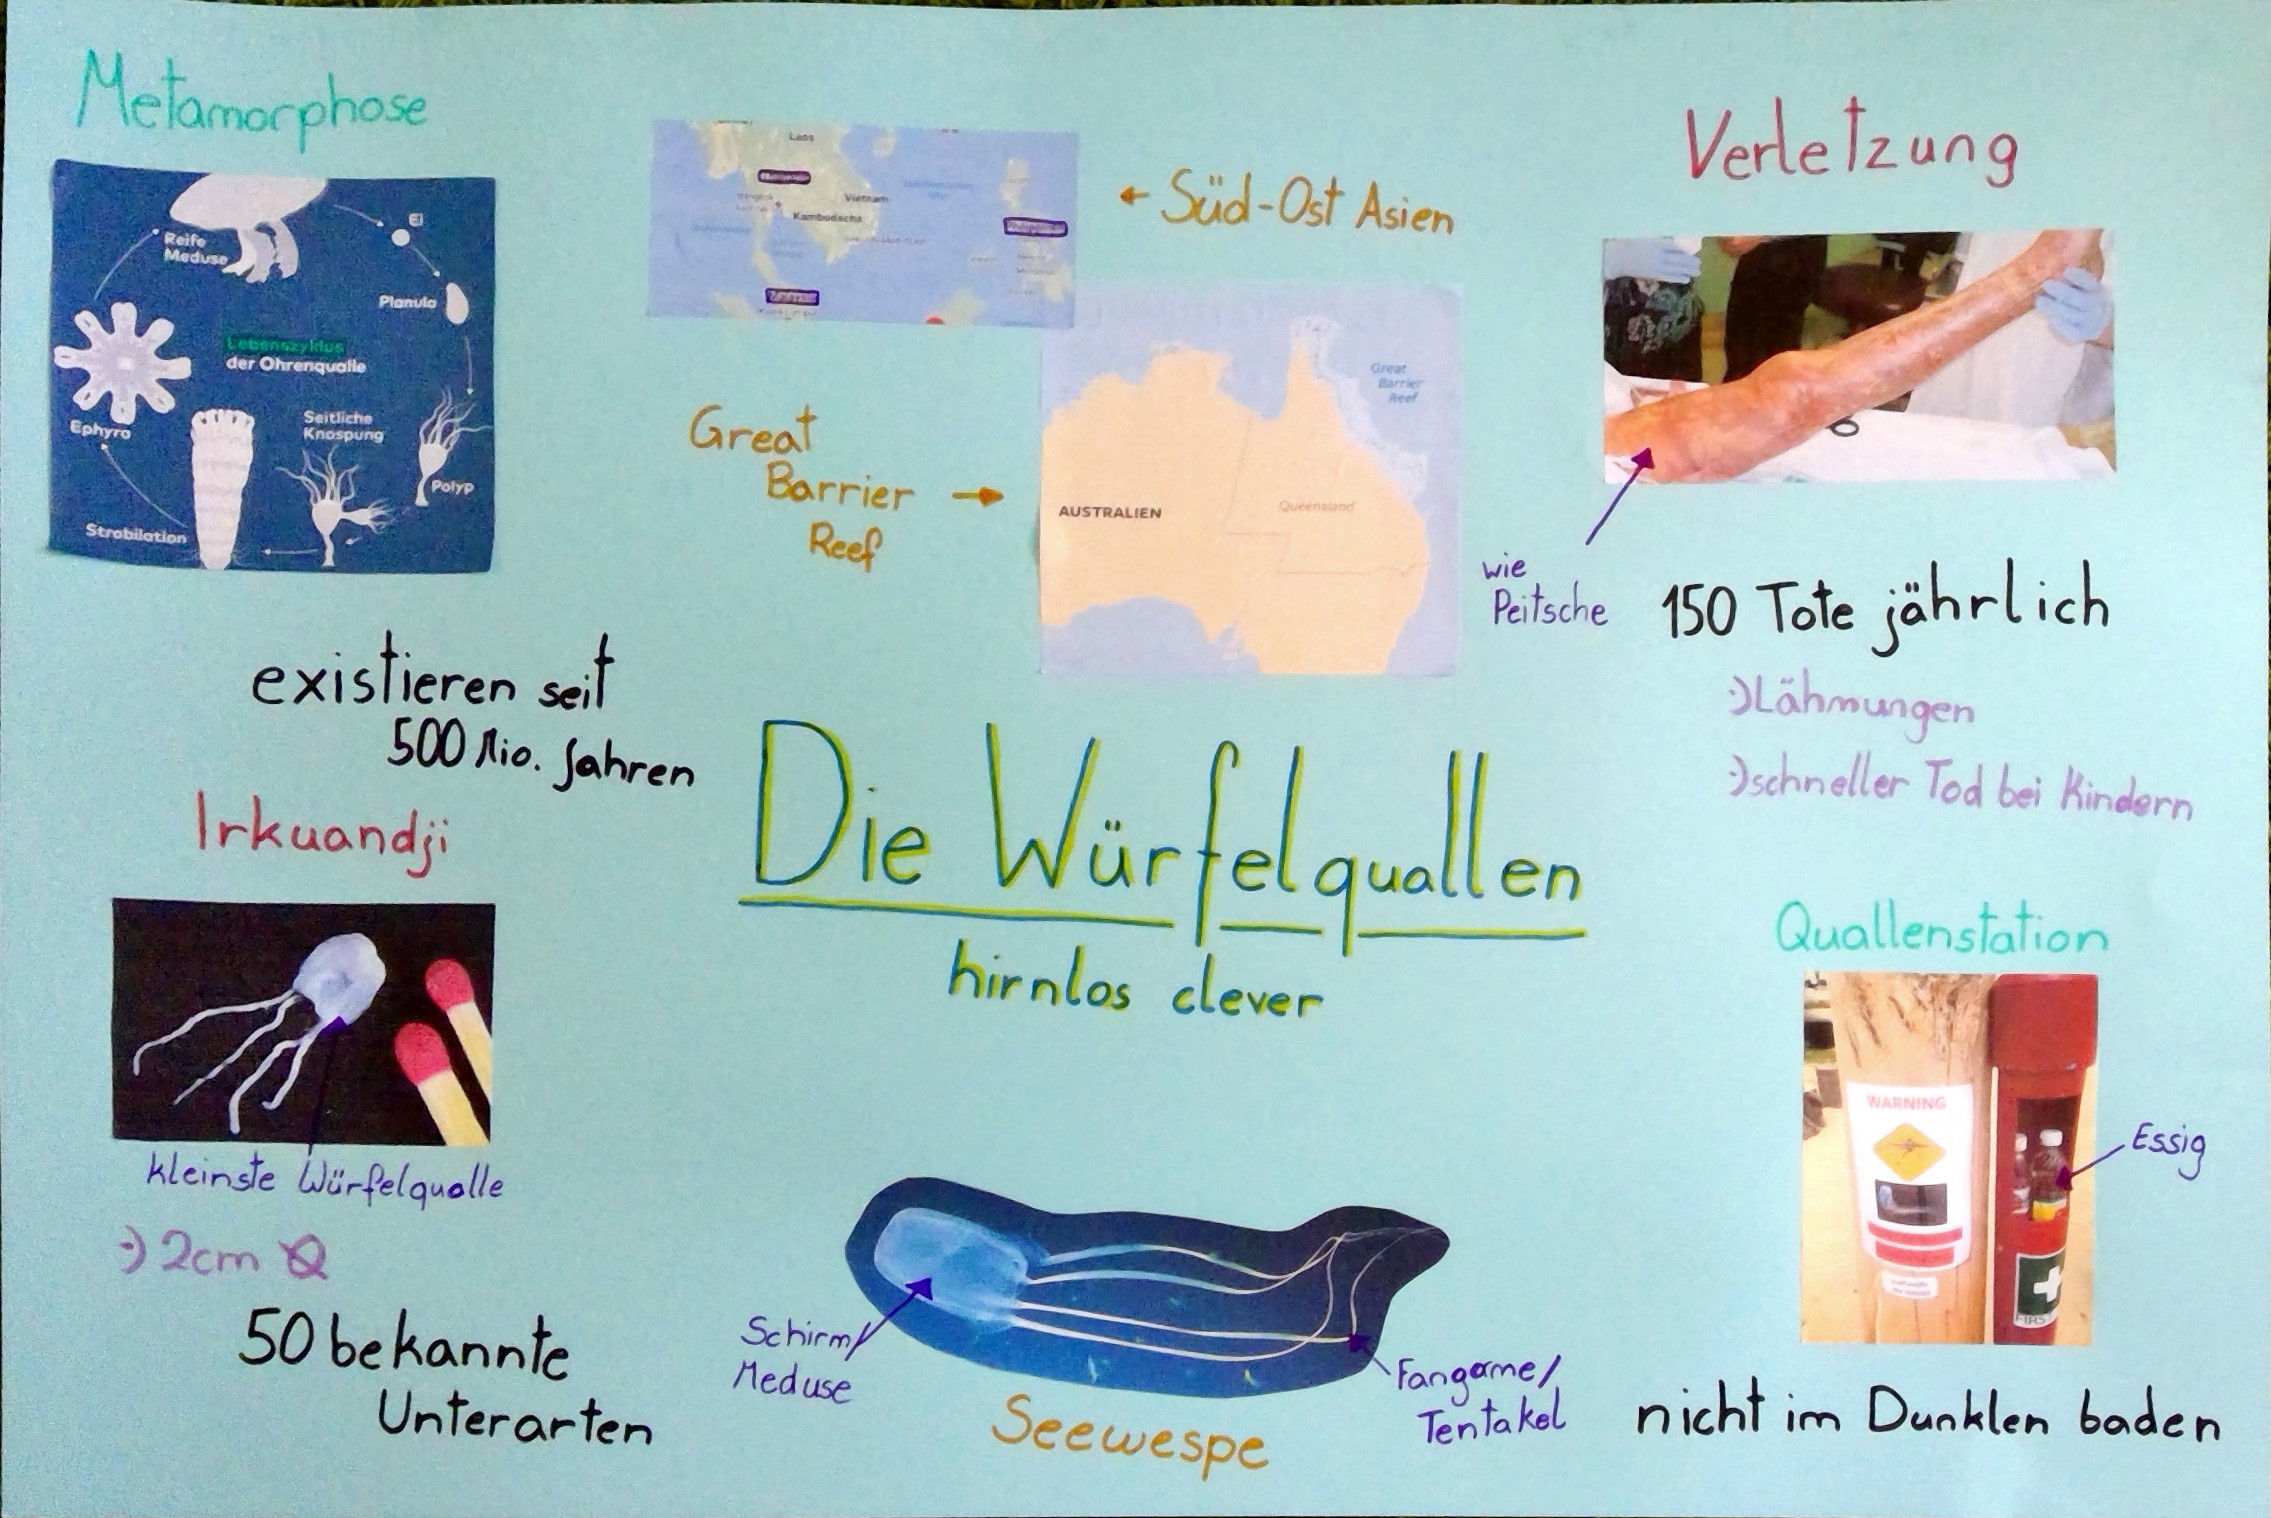 Metamorphose
Reife
Meduse
Ei
Planula
Lebenszyklus
der Ohrenqualle
Ephyra
Seitliche
Knospung
Polyp
Strobilation
Laos
Vietnam
Kambodscha
← Süd-Ost Asien
Great
Barrier
Reef →
Great
Barrier
Reef
AUSTRALIEN
Queensland
Verletzung
wie
Peitsche
150 Tote jährlich
Lähmungen
schneller Tod bei Kindern
existieren seit
500 Mio. Jahren
Die Würfelquallen
hirnlos clever
Irkuandji
kleinste Würfelqualle
2cm
50 bekannte
Unterarten
Schirm/
Meduse
Fangarme/
Tentakel
Seewespe
Quallenstation
WARNING
Essig
nicht im Dunklen baden